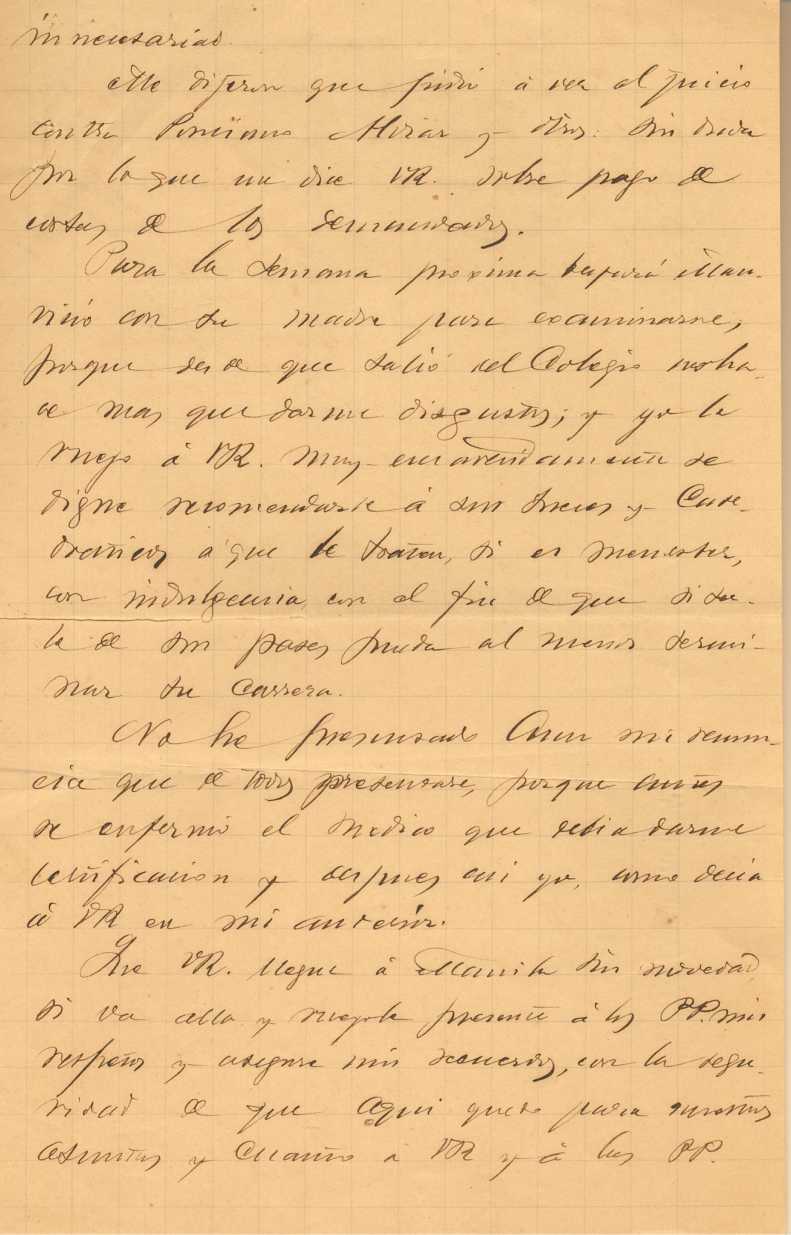 innecesarias.
Me dijeron que pidió á ver el juicio
contra Ponciano Mozar y otros: sin duda
por lo que me dice VR. sobre pago de
costas de los demandados.
Para la semana proxima bajará Mau-
ricio con su madre para examinarse,
porque desde que salió del Colegio no ha-
ce mas que darme disgustos; y yo le
ruego á VR. muy encarecidamente se
digne recomendarle á sus Jueces y Cate-
draticos á que le traten, si es menester,
con indulgencia con el fin de que si sa-
le de sus pases pueda al menos termi-
nar su carrera.
No he presentado aun mi renun-
cia que de todos presentare, porque antes
se enfermó el medico que debia darme
certificacion y despues caí yo, como decia
á VR en mi anterior.
Que VR. llegue á Manila sin novedad,
si va alla y ruegole presente á los PP. mis
respetos y asegure mis recuerdos, con la segu-
ridad de que aqui quedo para nuestros
asuntos y cuanto a VR y á los PP.